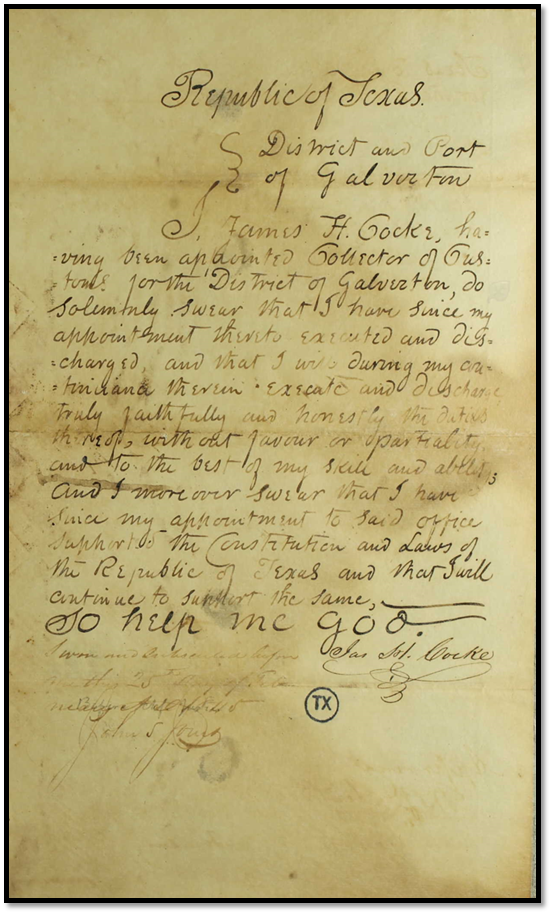 Republic of Texas.
District and Port
of Galverton
I, James H. Cocke, ha=
=ving been appointed Collector of Cus=
=toms for the District of Galverton, do
solemnly swear that I have since my
appointment thereto executed and dis=
=charged, and that I will during my con=
=tinuance therein execute and discharge,
truly faithfully and honestly the duties
thereof, without favour or partiality,
and to the best of my skill and ability;
And I moreover swear that I have
since my appointment to said office
supported the Constitution and Laws of
the Republic of Texas and that I will
continue to support the same,
So help me God.
Sworn and Subscribed before
Jas H. Cocke
me this 25th day of
John S Jones
TX